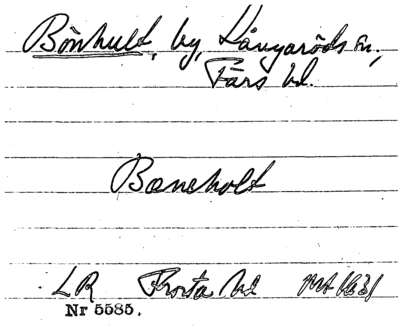 Bönhult, by, Långaröds sn.,
Färs hd.
Boneholt
LR Frosta hd
Nr 5585.